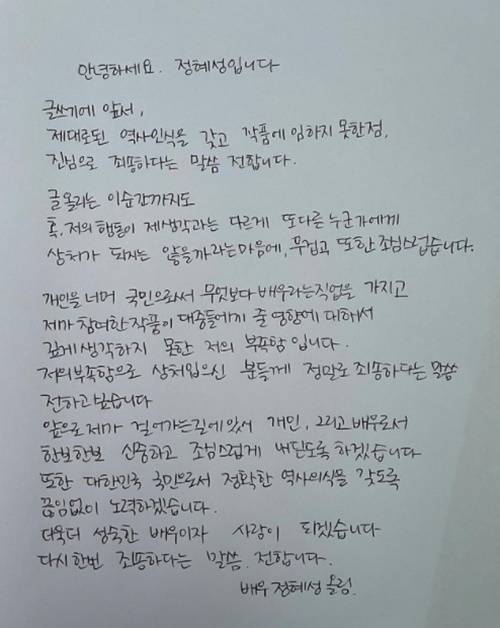 안녕하세요. 정혜성입니다
글쓰기에 앞서,
제대로된 역사인식을 갖고 작품에 임하지 못한점,
진심으로 죄송하다는 말씀 전합니다.
글올리는 이순간까지도
혹, 저의 행동이 제생각과는 다르게 또다른 누군가에게
상처가 되지는 않을까라는마음에, 무겁고 또한 조심스럽습니다.
개인을 너머 국민으로써 무엇보다 배우라는직업을 가지고
제가 참여한 작품이 대중들에게 줄 영향에 대해서
깊게 생각하지 못한 저의 부족함 입니다.
저의부족함으로 상처입으신 분들께 정말로 죄송하다는 말씀
전하고 싶습니다
앞으로 제가 걸어가는길에 있어 개인, 그리고 배우로서
한보한보 신중하고 조심스럽게 내딛도록 하겠습니다
또한 대한민국 국민으로서 정확한 역사의식을 갖도록
끊임없이 노력하겠습니다.
더욱더 성숙한 배우이자 사람이 되겠습니다
다시한번 죄송하다는 말씀. 전합니다.
배우 정혜성 올림.